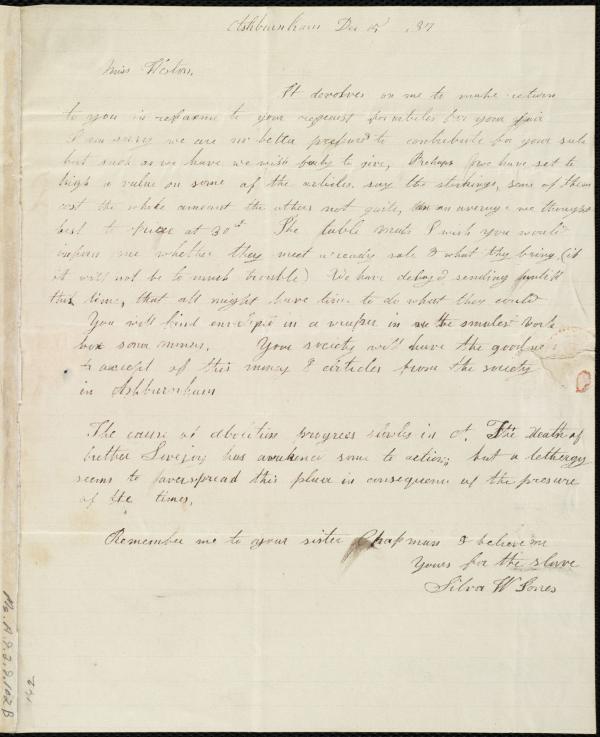 Ashburnham Dec 15 1837
Miss Weston,
It devolves on me to make return
to you in response to your request for articles for your fair
I am sorry we are no better prepared to contribute for your sale
but such as we have we wish freely to give, Perhaps we have set to
high a value on some of the articles, say the stockings, some of them
cost the whole amount the others not quite, on an average we thought
best to prize at 30ct The table mats I wish you would
inform me whether they meet a ready sale & what they bring (if
it will not be to much trouble) We have delay'd sending until
this time, that all might have time to do what they could
You will find envelop'd in a wrapper in the smalest work
box some money. Your society will have the goodness
to accept of this money & articles from the society
in Ashburnham
The cause of abolition progress slowly in A. The Death of
brother Lovejoy has awakened some to action; but a lethergy
seems to overspread this place in consequence of the pressure
of the times.
Remember me to your sister Chapman & believe me
Yours for the slave
Silva W Jones
Ms. A.9.2.9.102B